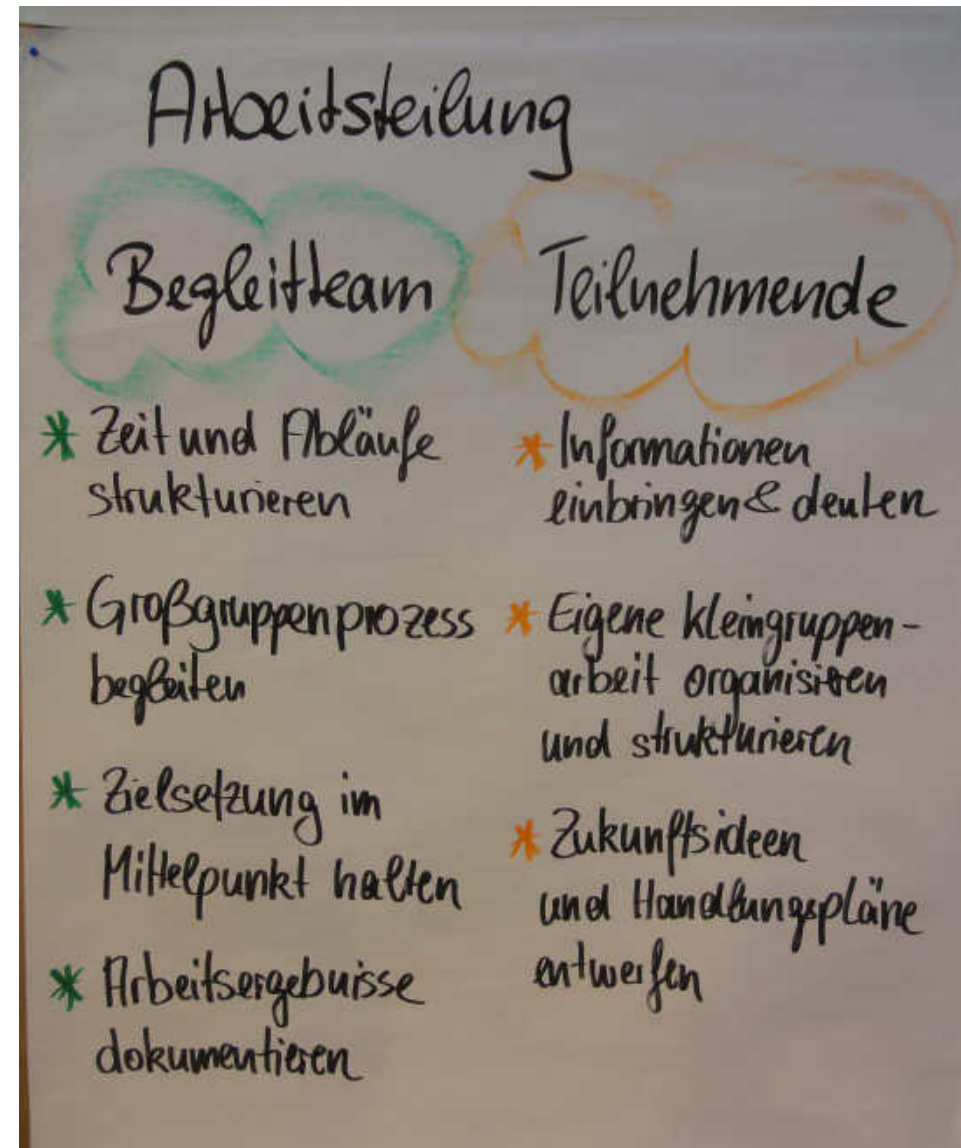 Arbeitsteilung
Begleitteam
* Zeit und Abläufe
strukturieren
* Großgruppenprozess
begleiten
* Zielsetzung im
Mittelpunkt halten
* Arbeitsergebnisse
dokumentieren
Teilnehmende
* Informationen
einbringen & deuten
* Eigene Kleingruppen-
arbeit organisieren
und strukturieren
* Zukunftsideen
und Handlungspläne
entwerfen